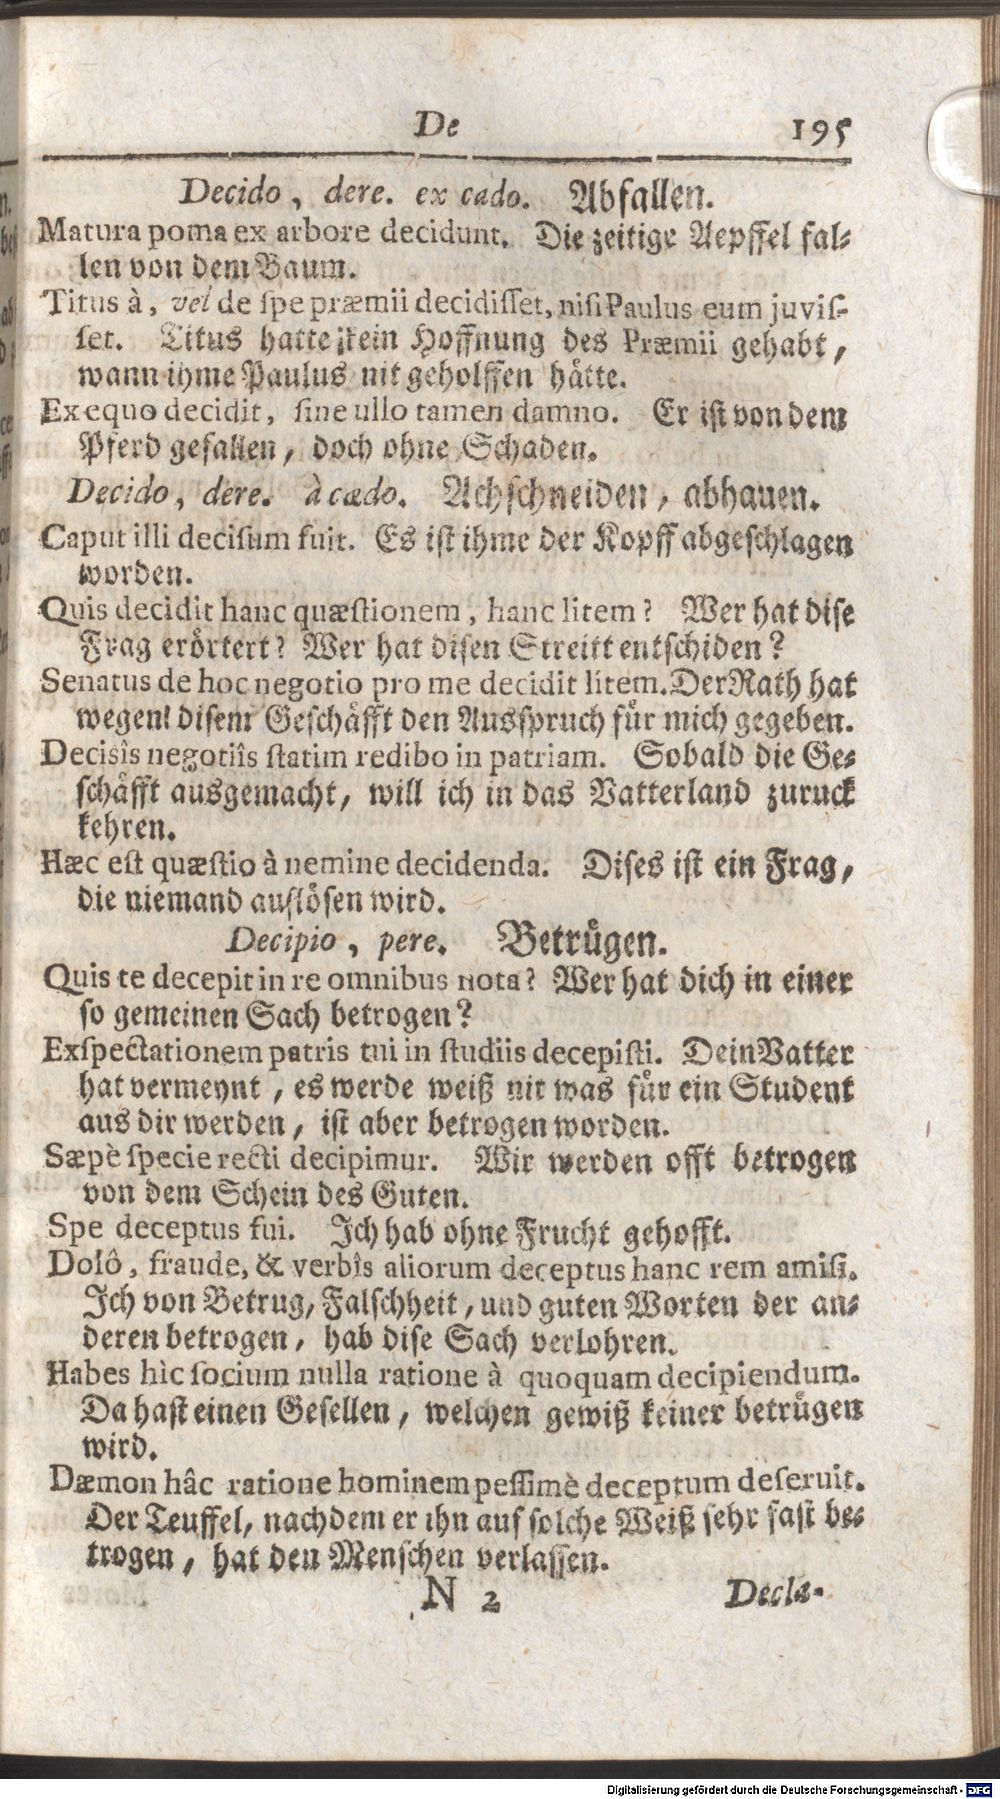 De 195
Decido, dere. ex cado. Abfallen.
Matura poma ex arbore decidunt. Die zeitige Aepffel fal-
len von dem Baum.
Titus à, vel de spe præmii decidisset, nisi Paulus eum juvis-
set. Titus hatte kein Hoffnung des Præmii gehabt,
wann ihme Paulus nit geholffen hätte.
Ex equo decidit, sine ullo tamen damno. Er ist von dem
Pferd gefallen, doch ohne Schaden.
Decido, dere. à cædo. Achschneiden, abhauen.
Caput illi decisum fuit. Es ist ihme der Kopff abgeschlagen
worden.
Quis decidit hanc quæstionem, hanc litem? Wer hat dise
Frag erörtert? Wer hat disen Streitt entschiden?
Senatus de hoc negotio pro me decidit litem. Der Rath hat
wegen disem Geschäfft den Ausspruch für mich gegeben.
Decisîs negotiîs statim redibo in patriam. Sobald die Ge-
schäfft ausgemacht, will ich in das Vatterland zuruck
kehren.
Hæc est quæstio à nemine decidenda. Dises ist ein Frag,
die niemand auflösen wird.
Decipio, pere. Betrügen.
Quis te decepit in re omnibus nota? Wer hat dich in einer
so gemeinen Sach betrogen?
Exspectationem patris tui in studiis decepisti. Dein Vatter
hat vermeynt, es werde weiß nit was für ein Student
aus dir werden, ist aber betrogen worden.
Sæpè specie recti decipimur. Wir werden offt betrogen
von dem Schein des Guten.
Spe deceptus fui. Ich hab ohne Frucht gehofft.
Dolô, fraude, & verbîs aliorum deceptus hanc rem amisi.
Ich von Betrug, Falschheit, und guten Worten der an-
deren betrogen, hab dise Sach verlohren.
Habes hìc socium nulla ratione à quoquam decipiendum.
Da hast einen Gesellen, welchen gewiß keiner betrügen
wird.
Dæmon hâc ratione hominem pessimè deceptum deseruit.
Der Teuffel, nachdem er ihn auf solche Weiß sehr fast be-
trogen, hat den Menschen verlassen.
N 2 Decla-
Digitalisierung gefördert durch die Deutsche Forschungsgemeinschaft - DFG